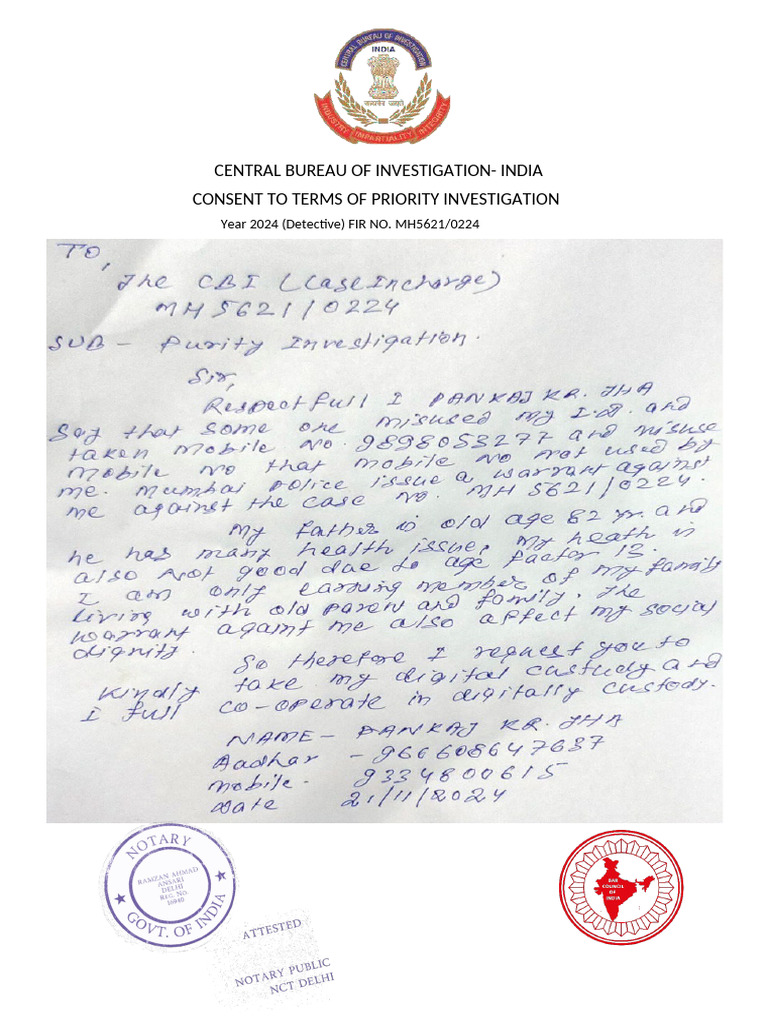 CENTRAL BUREAU OF INVESTIGATION
INDIA
सत्यमेव जयते
INDUSTRY IMPARTIALITY INTEGRITY
CENTRAL BUREAU OF INVESTIGATION- INDIA
CONSENT TO TERMS OF PRIORITY INVESTIGATION
Year 2024 (Detective) FIR NO. MH5621/0224
TO,
The CBI (Case Incharge)
MH5621/0224
SUB - Purity Investigation.
Sir,
Respectfull I PANKAJ KR. JHA
Say that some one misused my I.D. and
taken mobile No. 9898053277 and misuse
mobile no that mobile no not used by
me. Mumbai Police issue a warrant against
me against the case no. MH5621/0224.
My father is old age 82 yr. and
he has many health issue, my heath is
also not good due to age factor
I am only earning member of my family
living with old parent and family. The
warrant against me also affect my social
dignity.
So therefore I request you to
Kindly take my digital custudy and
I full co-operate in digitally custody.
NAME - PANKAJ KR. JHA
Aadhar - 966608647637
Mobile. 9334800615
Date 21/11/2024
NOTARY
RAMZAN AHMAD
ANSARI
DELHI
REG. NO.
16940
GOVT. OF INDIA
ATTESTED
NOTARY PUBLIC
NCT DELHI
BAR
COUNCIL
OF
INDIA